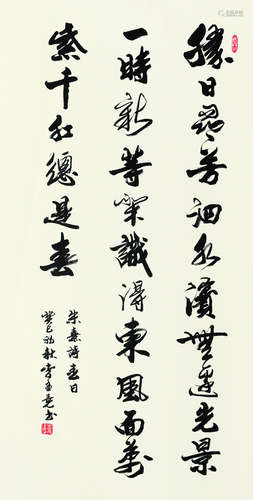 勝日尋芳泗水濱無邊光景
一時新等閑識得東風面萬
紫千紅總是春
朱熹詩春日
癸巳初秋李书